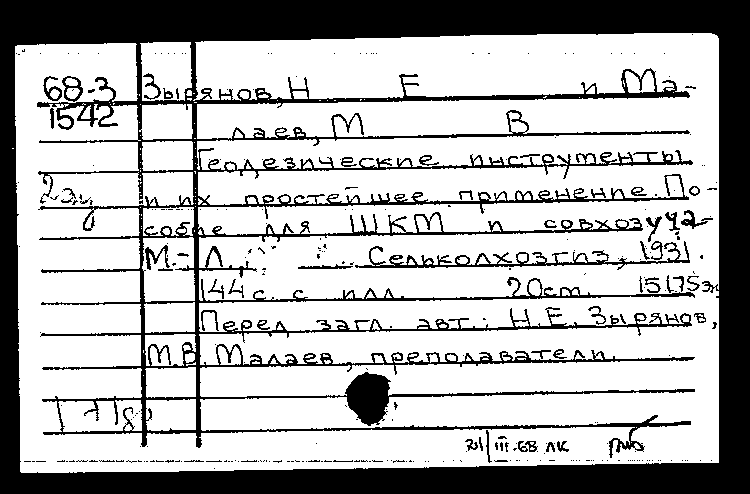 68-3 Зырянов, Н Е и Ма-
1542 лаев, М В
Геодезические инструменты
2 экз и их простейшее применение. По-
собие для ШКМ и совхозуча-
М.-Л., Сельколхозгиз, 1931.
144 с. с илл. 20 см. 15175 экз
Перед загл. авт.: Н.Е. Зырянов,
М.В. Малаев, преподаватели.
21/III-68 ЛК